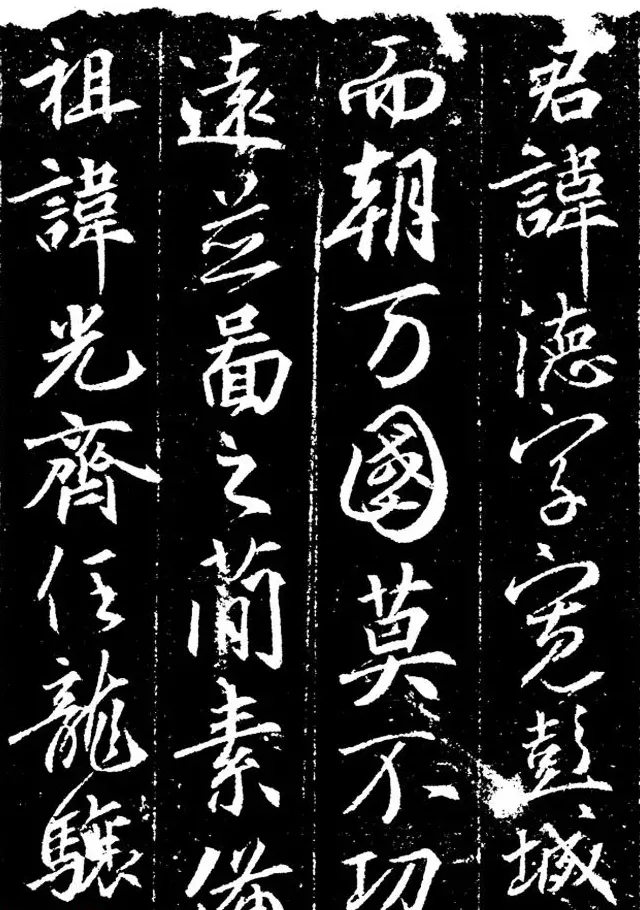 君諱德字寬彭城
而朝万國莫不功
遠並啚之簡素備
祖諱光齊任龍驤